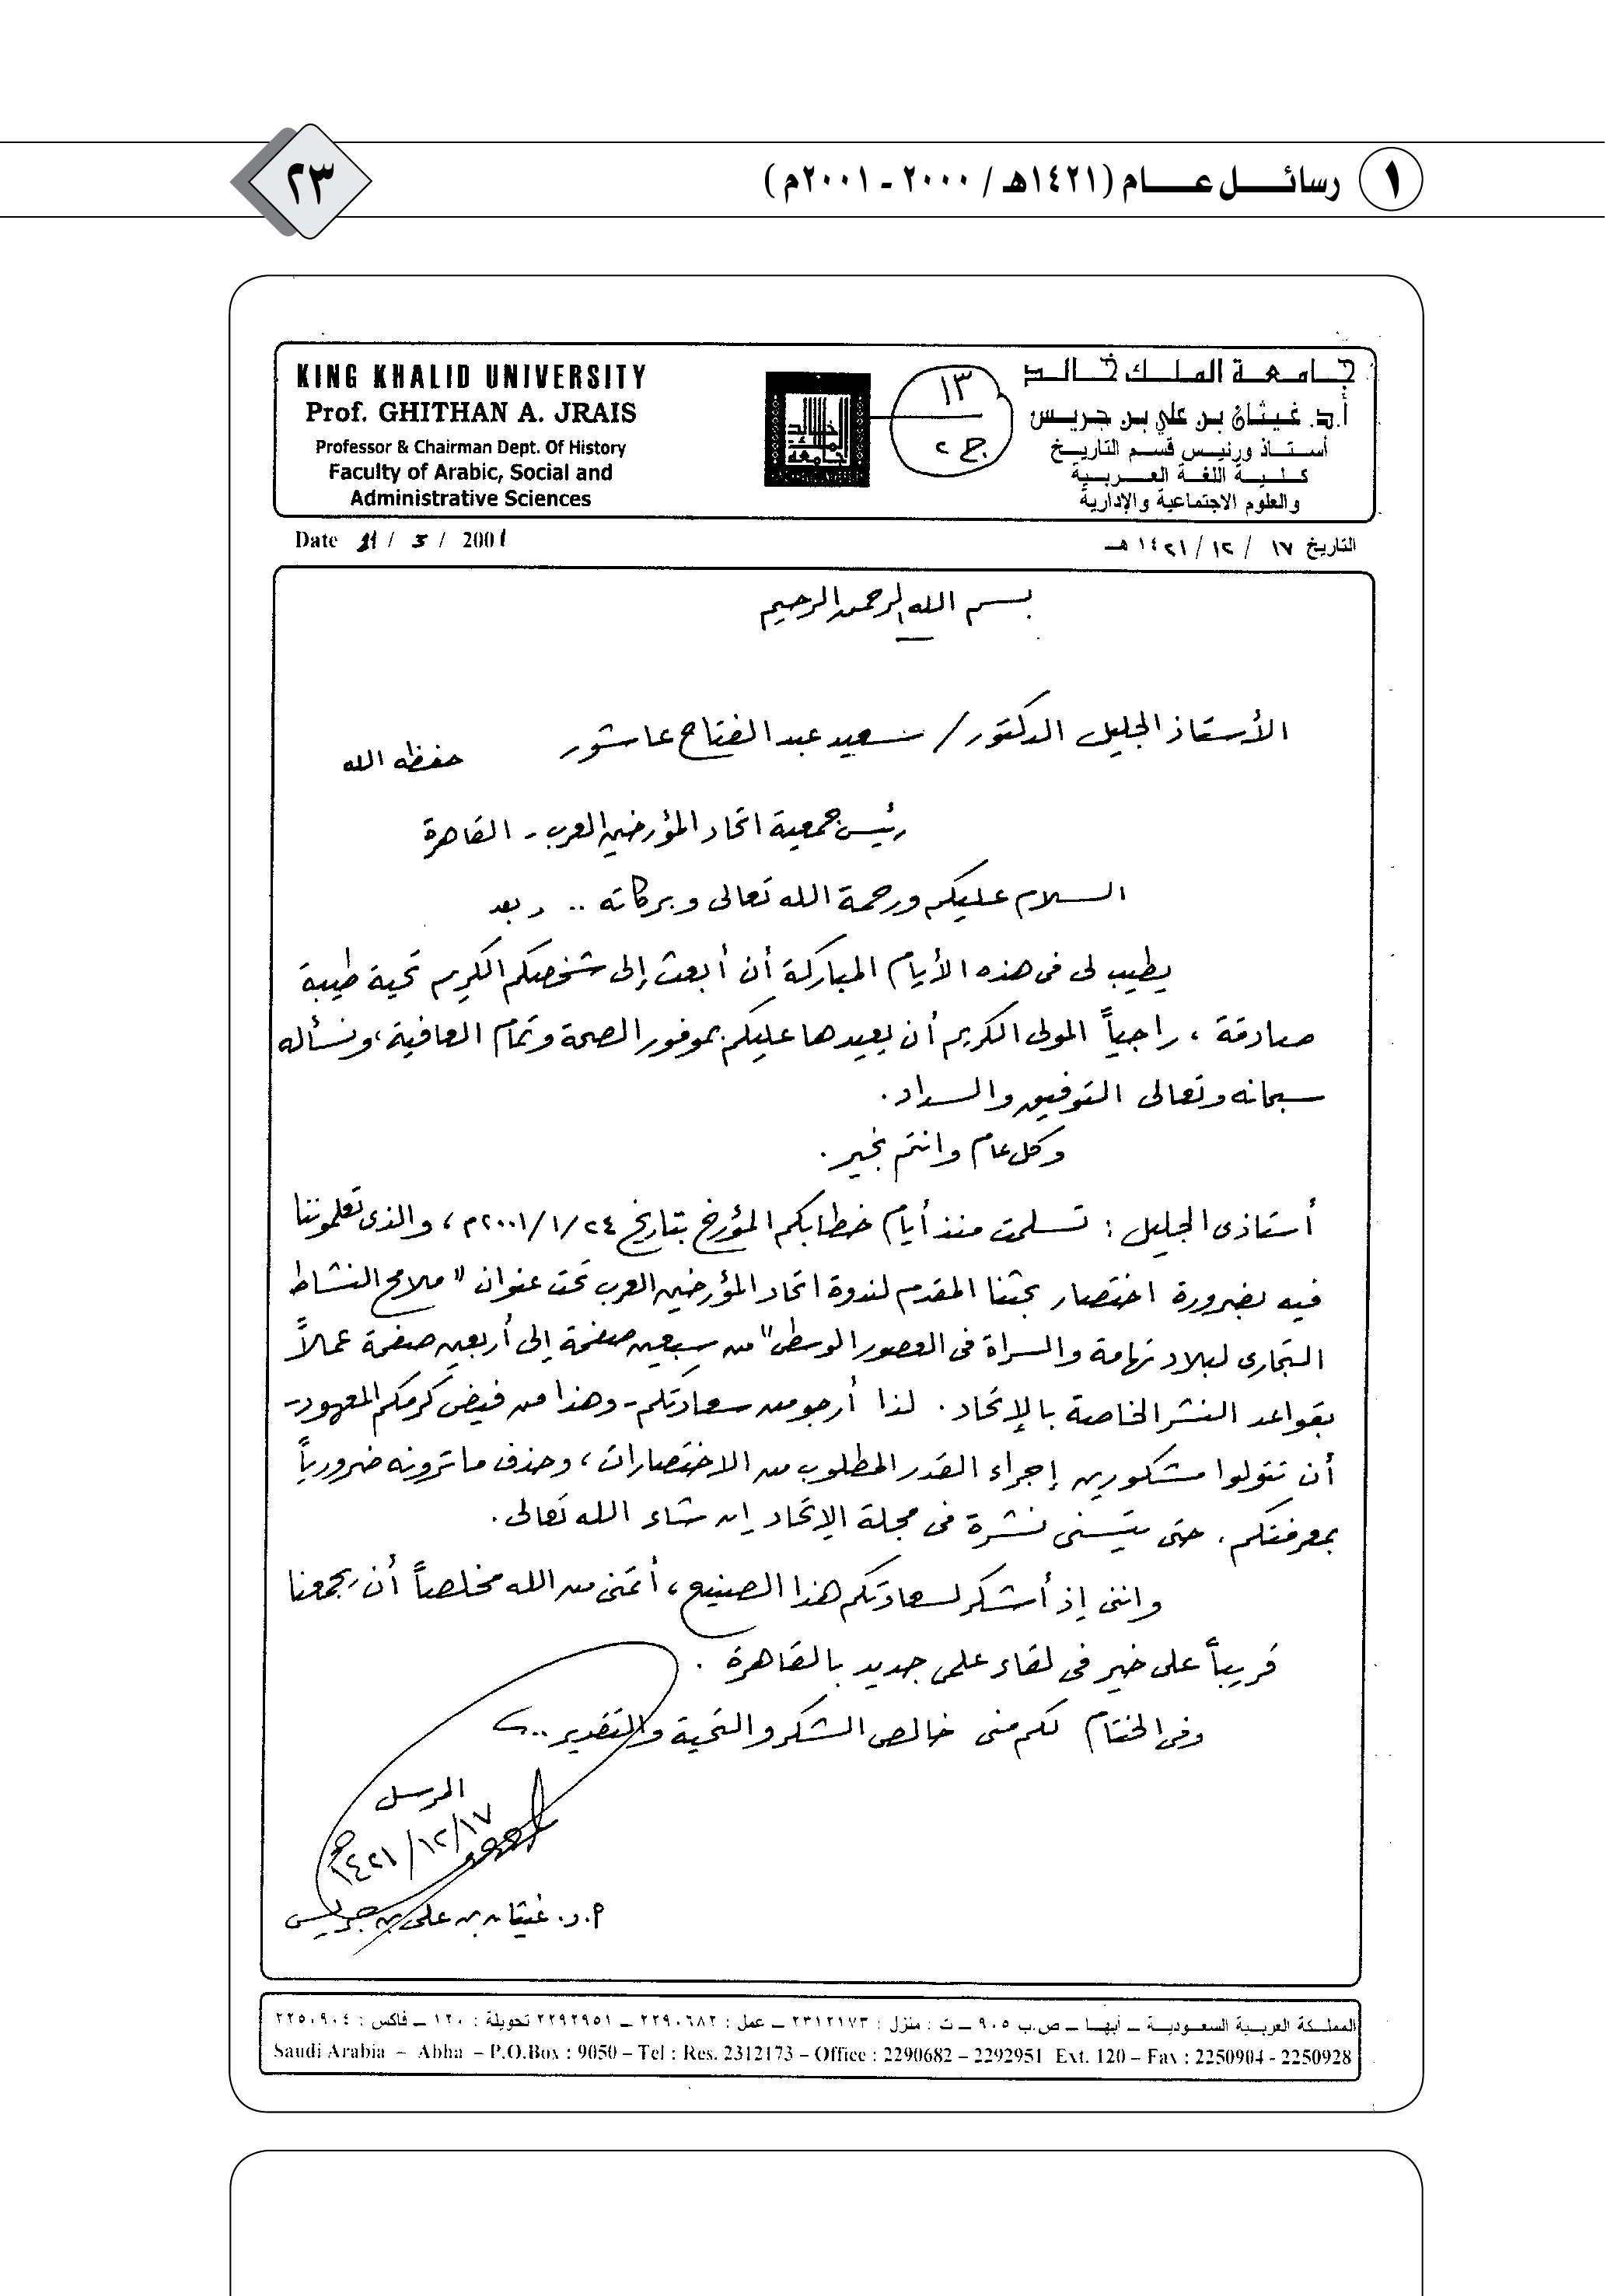 ١ رسائل عام (١٤٢١هـ / ٢٠٠٠ - ٢٠٠١م)
٢٣
KING KHALID UNIVERSITY
Prof. GHITHAN A. JRAIS
Professor & Chairman Dept. Of History
Faculty of Arabic, Social and
Administrative Sciences
خالد الملك جامعة
١٣
ج ٢
جامعة الملك خالد
أ.د. غيثان بن علي بن جريس
أستاذ ورئيس قسم التاريخ
كلية اللغة العربية
والعلوم الاجتماعية والإدارية
Date / 3 / 2001
التاريخ ١٧ / ١٢ / ١٤٢١ هـ
بسم الله الرحمن الرحيم
الأستاذ الجليل الدكتور / سعيد عبد الفتاح عاشور حفظه الله
رئيس جمعية اتحاد المؤرخين العرب - القاهرة
السلام عليكم ورحمة الله تعالى وبركاته .. وبعد
يطيب لى فى هذه الأيام المباركة أن أبعث إلى شخصكم الكريم تحية طيبة
صادقة ، راجياً المولى الكريم أن يعيدها عليكم بموفور الصحة وتمام العافية، ونسأله
سبحانه وتعالى التوفيق والسداد.
وكل عام وانتم بخير.
أستاذى الجليل : تسلمت منذ أيام خطابكم المؤرخ بتاريخ ٢٤/١/٢٠٠١م، والذى تعلموننا
فيه بضرورة اختصار بحثنا المقدم لندوة اتحاد المؤرخين العرب تحت عنوان " ملامح النشاط
التجارى لبلاد تهامة والسراة فى العصور الوسطى" من سبعين صفحة إلى أربعين صفحة عملاً
بقواعد النشر الخاصة بالإتحاد. لذا أرجو من سعادتكم - وهذا من فيض كرمكم المعهود-
أن تتولوا مشكورين إجراء القدر المطلوب من الاختصارات، وحذف ماترونه ضرورياً
بمعرفتكم. حتى يتسنى نشرة فى مجلة الإتحاد إن شاء الله تعالى.
واننى إذ أشكر لسعادتكم هذا الصنيع، أتمنى من الله مخلصاً أن يجمعنا
قريباً على خير فى لقاء علمى جديد بالقاهرة .
وفى الختام لكم منى خالص الشكر والتحية والتقدير ..،
المرسل
١٤٢١/١٢/١٧هـ
أ.د. غيثان بن على بن جريس
المملكة العربية السعودية – أبها – ص.ب ٩٠٥ – ت : منزل : ٢٣١٢١٧٣ – عمل : ٢٢٩٠٦٨٢ – ٢٢٩٢٩٥١ تحويلة : ١٢٠ – فاكس : ٢٢٥٠٩٠٤
Saudi Arabia – Abha – P.O.Box : 9050 – Tel : Res. 2312173 – Office : 2290682 – 2292951 Ext. 120 – Fax : 2250904 - 2250928